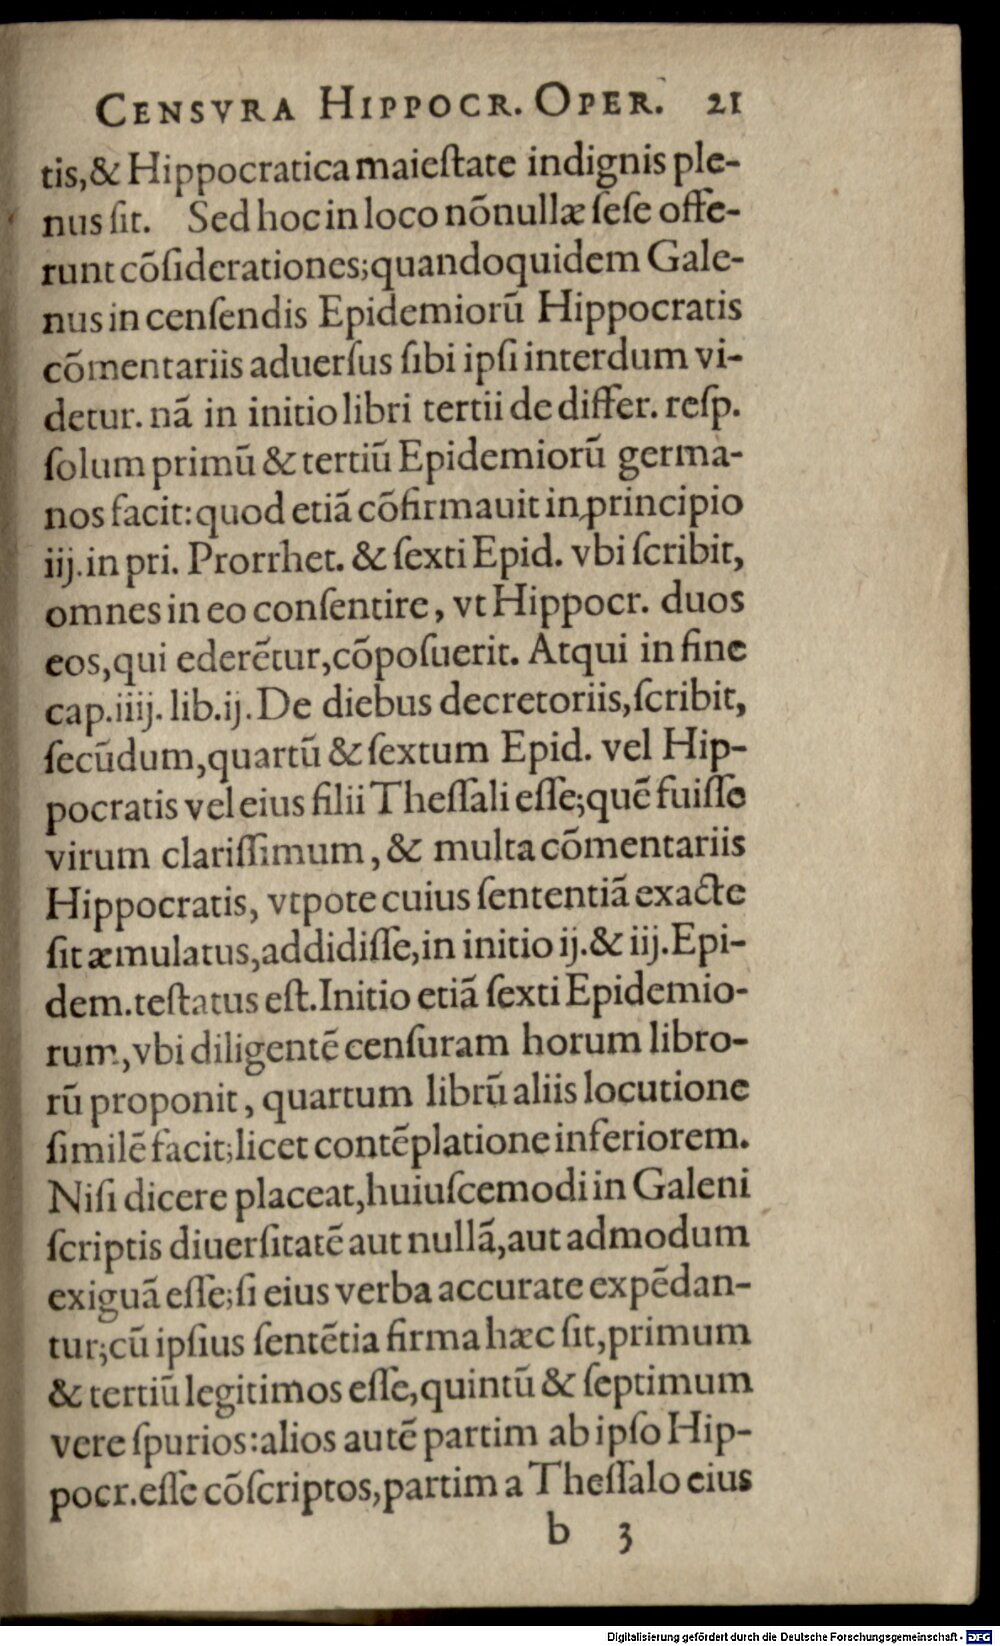 CENSVRA HIPPOCR. OPER. 21
tis,& Hippocratica maieſtate indignis ple-
nus ſit. Sed hoc in loco nōnullæ ſeſe offe-
runt cōſiderationes;quandoquidem Gale-
nus in cenſendis Epidemiorū Hippocratis
cōmentariis aduerſus ſibi ipſi interdum vi-
detur. nā in initio libri tertii de differ. reſp.
ſolum primū & tertiū Epidemiorū germa-
nos facit:quod etiā cōfirmauit in principio
iij.in pri. Prorrhet. & ſexti Epid. vbi ſcribit,
omnes in eo conſentire, vt Hippocr. duos
eos,qui ederētur,cōpoſuerit. Atqui in fine
cap.iiij. lib.ij. De diebus decretoriis,ſcribit,
ſecūdum,quartū & ſextum Epid. vel Hip-
pocratis vel eius filii Theſſali eſſe;quē fuiſſe
virum clariſſimum, & multa cōmentariis
Hippocratis, vtpote cuius ſententiā exacte
ſit æmulatus,addidiſſe,in initio ij.& iij.Epi-
dem.teſtatus eſt.Initio etiā ſexti Epidemio-
rum,vbi diligentē cenſuram horum libro-
rū proponit, quartum librū aliis locutione
ſimilē facit;licet contēplatione inferiorem.
Niſi dicere placeat,huiuſcemodi in Galeni
ſcriptis diuerſitatē aut nullā,aut admodum
exiguā eſſe;ſi eius verba accurate expēdan-
tur;cū ipſius ſentētia firma hæc ſit,primum
& tertiū legitimos eſſe,quintū & ſeptimum
vere ſpurios:alios autē partim ab ipſo Hip-
pocr.eſſe cōſcriptos,partim a Theſſalo eius
b 3
Digitalisierung gefördert durch die Deutsche Forschungsgemeinschaft - DFG